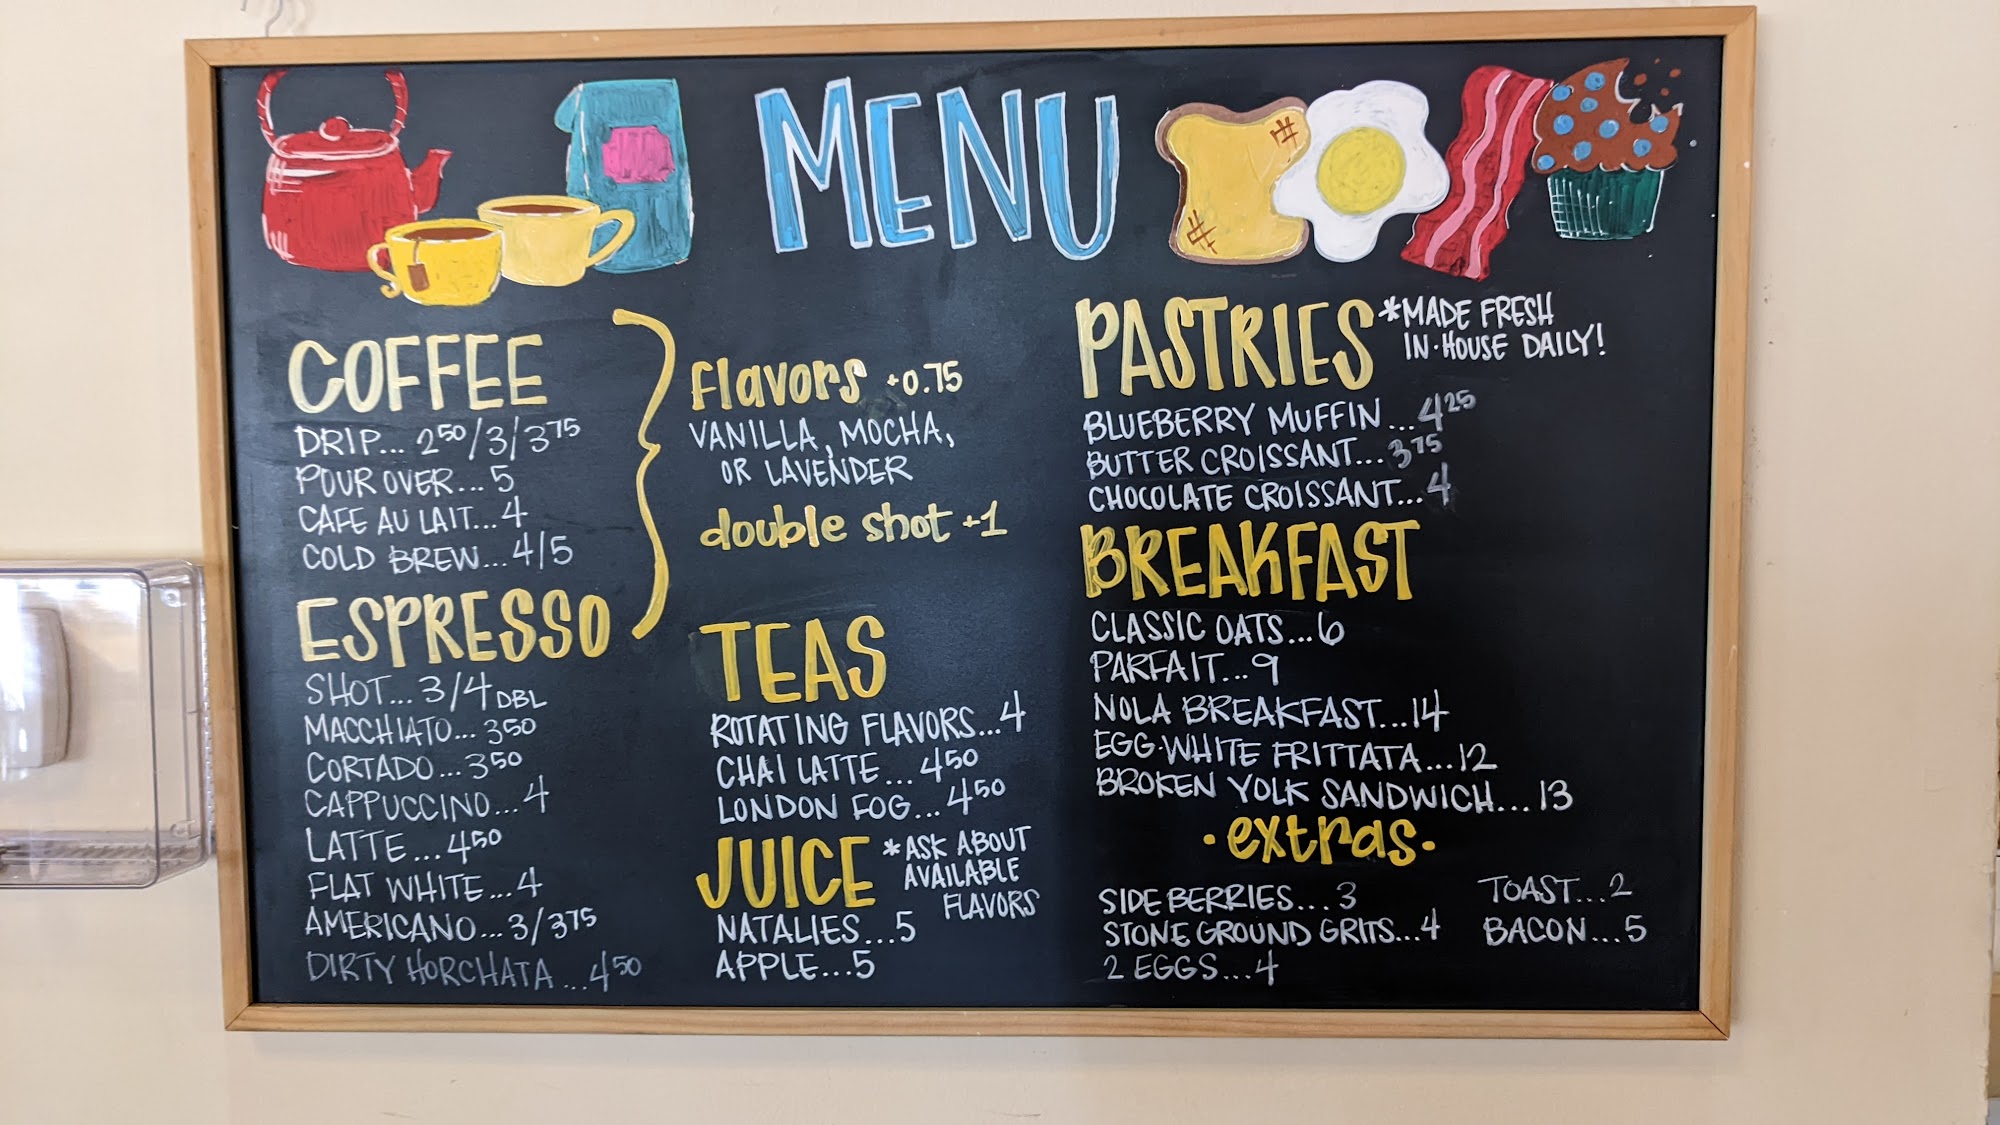 MENU
COFFEE
DRIP... 2⁵⁰/3/3⁷⁵
POUR OVER... 5
CAFE AU LAIT... 4
COLD BREW... 4/5
ESPRESSO
SHOT... 3/4 DBL
MACCHIATO... 3⁵⁰
CORTADO... 3⁵⁰
CAPPUCCINO... 4
LATTE... 4⁵⁰
FLAT WHITE... 4
AMERICANO... 3/3⁷⁵
DIRTY HORCHATA... 4⁵⁰
flavors +0.75
VANILLA, MOCHA,
OR LAVENDER
double shot +1
TEAS
ROTATING FLAVORS... 4
CHAI LATTE... 4⁵⁰
LONDON FOG... 4⁵⁰
JUICE
*ASK ABOUT
AVAILABLE
FLAVORS
NATALIES... 5
APPLE... 5
PASTRIES
*MADE FRESH
IN-HOUSE DAILY!
BLUEBERRY MUFFIN... 4²⁵
BUTTER CROISSANT... 3⁷⁵
CHOCOLATE CROISSANT... 4
BREAKFAST
CLASSIC OATS... 6
PARFAIT... 9
NOLA BREAKFAST... 14
EGG·WHITE FRITTATA... 12
BROKEN YOLK SANDWICH... 13
·extras·
SIDE BERRIES... 3
STONE GROUND GRITS... 4
2 EGGS... 4
TOAST... 2
BACON... 5